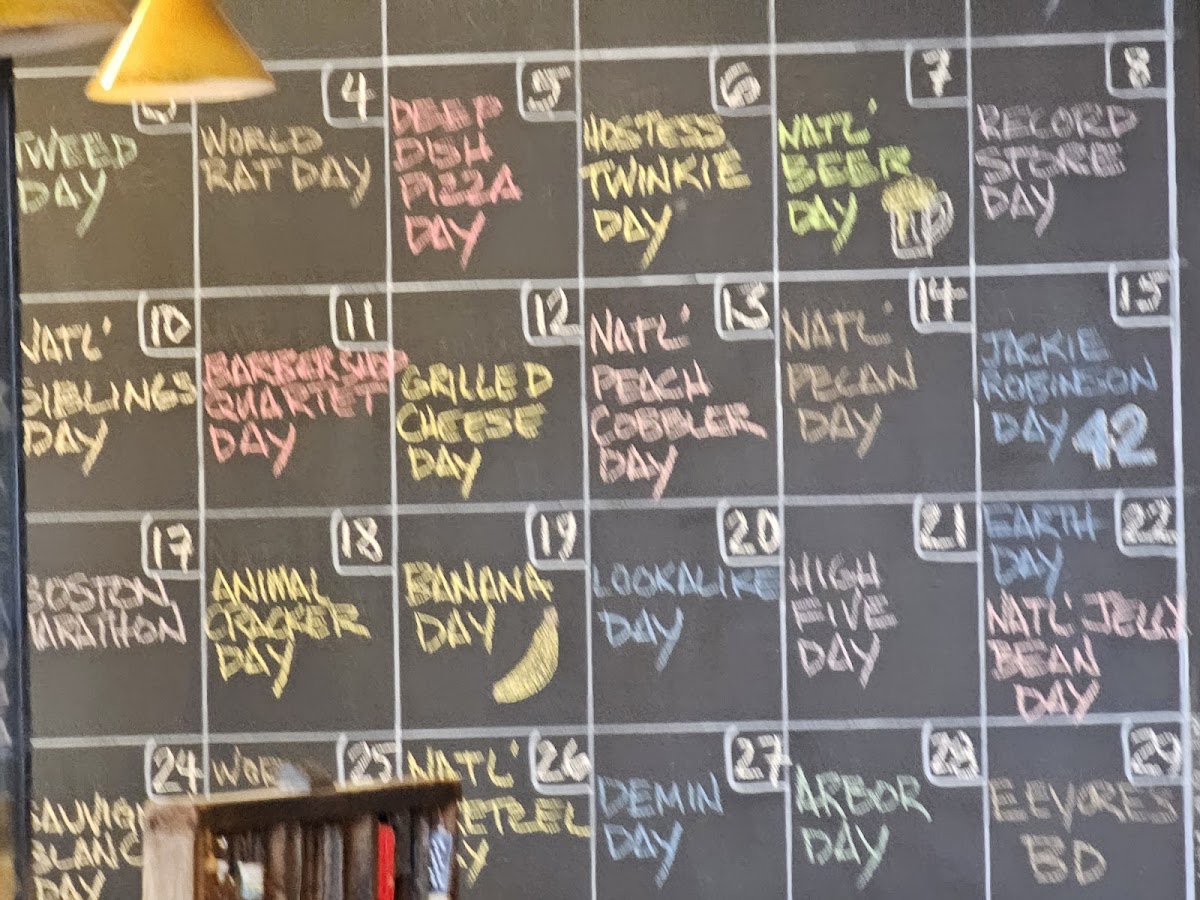 4
5
6
7
8
TWEED
DAY
WORLD
RAT DAY
DEEP
DISH
PIZZA
DAY
HOSTESS
TWINKIE
DAY
NATL'
BEER
DAY
RECORD
STORE
DAY
10
11
12
13
14
15
NATL'
SIBLINGS
DAY
BARBERSHOP
QUARTET
DAY
GRILLED
CHEESE
DAY
NATL'
PEACH
COBBLER
DAY
NATL'
PECAN
DAY
JACKIE
ROBINSON
DAY 42
17
18
19
20
21
22
BOSTON
ARATHON
ANIMAL
CRACKER
DAY
BANANA
DAY
LOOKALIKE
DAY
HIGH
FIVE
DAY
EARTH
DAY
NATL' JELLY
BEAN
DAY
24
25
26
27
28
29
SAUVIGN
BLANC
DAY
WOR
NATL'
RETZEL
AY
DEMIN
DAY
ARBOR
DAY
EEYORES
BD